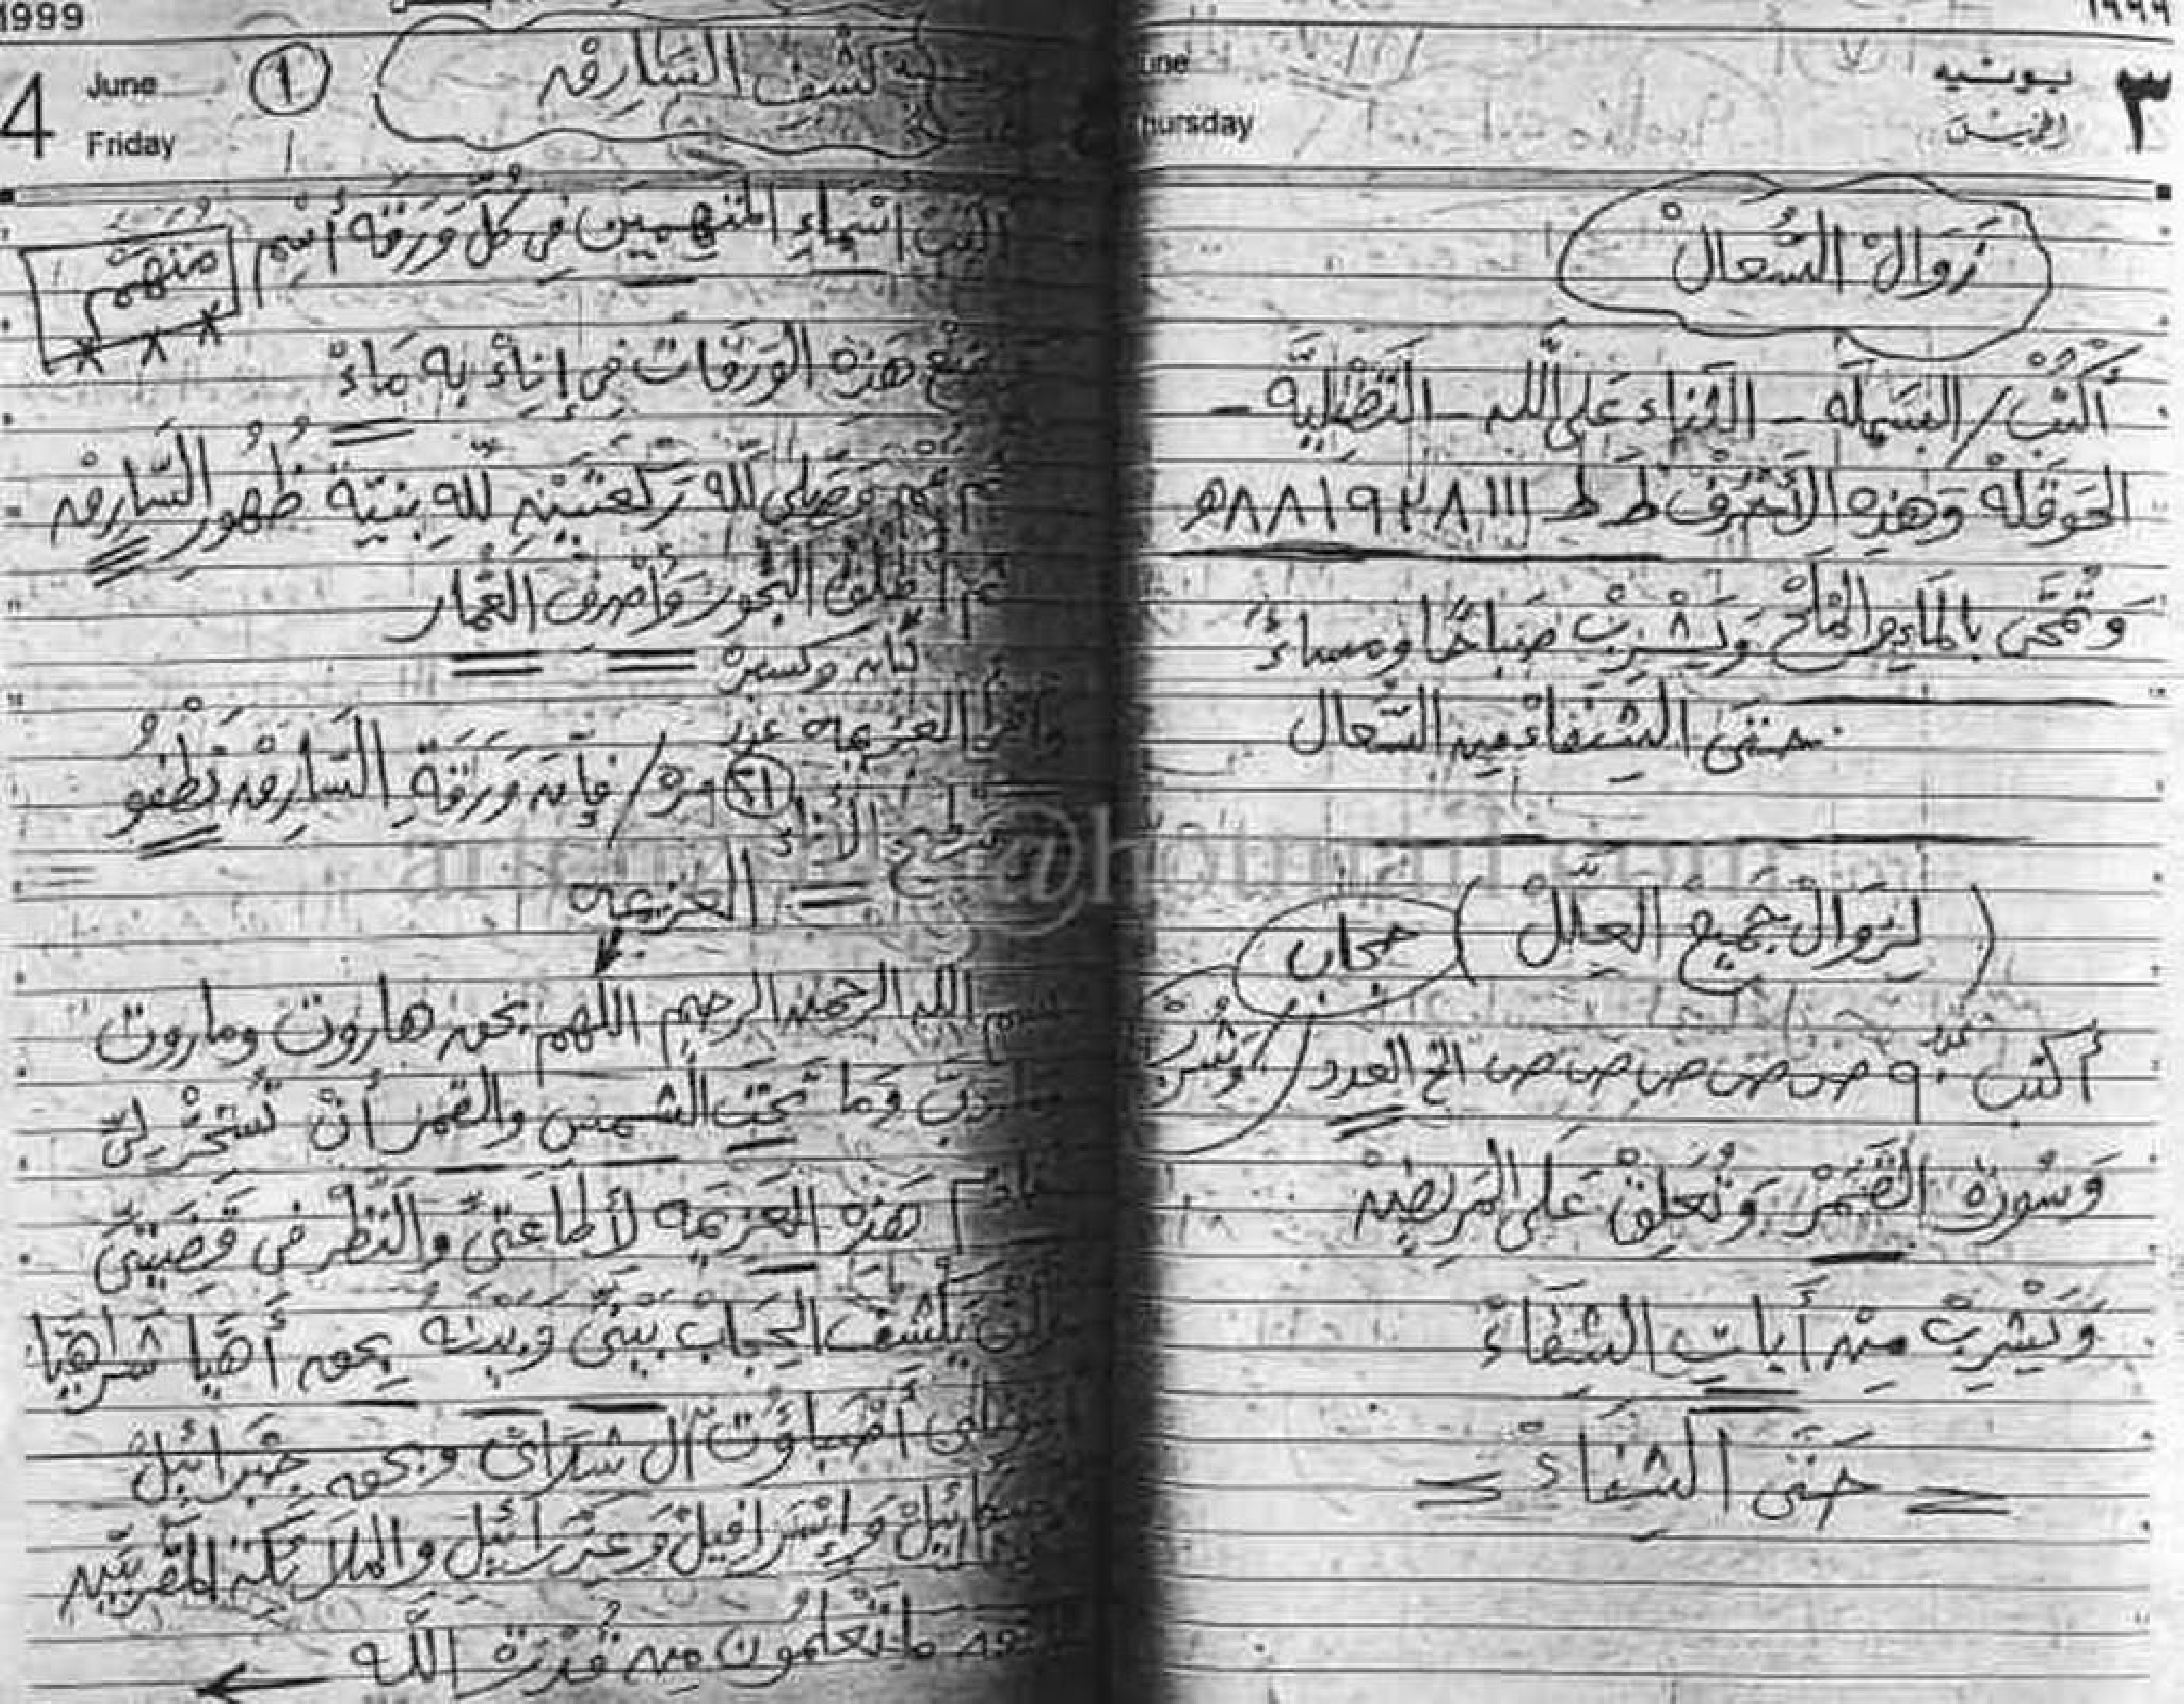 ١٩٩٩
٣ يونيه
الخميس
Thursday
زَوَالْ السُعالْ
أكْتُبْ / البَسمَلَه – الثناء عَلى اللَّه – التَصْلِيَّه –
الحَوقَلهْ وَهَذِهِ الأحْرُفْ ط ط ااا ٨٨١٩٢٨ ه
وَتُمْحَى بالمَاءِ والمْلحْ وَيَشْرِبْ صَباحًا ومساءً
حتى الشِفاءْ مِن السُعال
( لِزَوَالْ جَمِيعْ العِلَلْ ) حجاب
أكتب عدد ٩٠ ص ص ص ص ص ص الخ العدد / وشرب
وَسُورة القَمَرْ وَتُعَلقْ عَلى المَريضْ
وَيَشْرِبْ مِنْ أَياتِ الشِفَاءْ
= حَتَى الشِفَاءْ =
1999
4 June
Friday
١
كَشْف السَارِقْ
أكتب أسْمَاءِ المُتهمِين في كُلّ وَرَقَه أسْم مُتهَم
هَذِهِ الوَرَقاتْ في إناءْ بِه مَاءْ
ثم قم وَصَلى للّه رَكعتَينِ للّه بنيّة ظُهُورِ السَّارِقْ
ثم أطلق البخور وَأصْرِفْ العُمار
لبان وكسبره
وأقرأ العزيمه عدد
٢١ مره / فإن وَرَقةِ السَارِقْ تَطفُو
سَطح الأناءْ
العزيمه
بسم اللّه الرحمن الرحيم اللهم بحق هاروت وماروت
وَمَا تحت الشمس والقمر أنْ تُسَخْر لِيّ
هَذِهِ العَزِيمَه لأطاعَتِيّ والنَظَر في قَضيَتِيّ
يكشف الحِجَاب بَينيّ وبينه بحق أَهْيَا شَراهْيَا
أصْباؤُتْ آل شدّاىْ وبحق جِبْرائيلْ
وميكائيلْ وَإسْرافيلْ وَعزرائيل والملائكة المقربين
مَا تَعْلمُون مِن قُدْرَة اللَّه